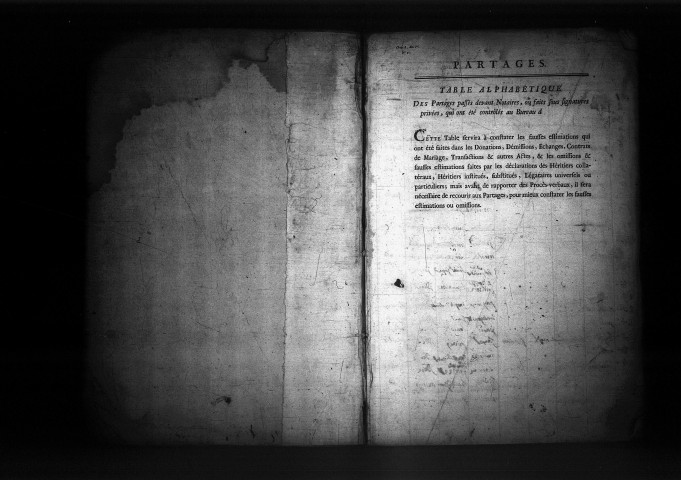 PARTAGES.
TABLE ALPHABÉTIQUE
DES Partages passés devant Notaires, ou faits sous signatures
privées, qui ont été contrôlés au Bureau d
CETTE Table servira à constater les fausses estimations qui
ont été faites dans les Donations, Démissions, Echanges, Contrats
de Mariage, Transactions & autres Actes, & les omissions &
fausses estimations faites par les déclarations des Héritiers colla-
téraux, Héritiers institués, substitués, Légataires universels ou
particuliers; mais avant de rapporter des Procès-verbaux, il sera
nécessaire de recourir aux Partages, pour mieux constater les fausses
estimations ou omissions.